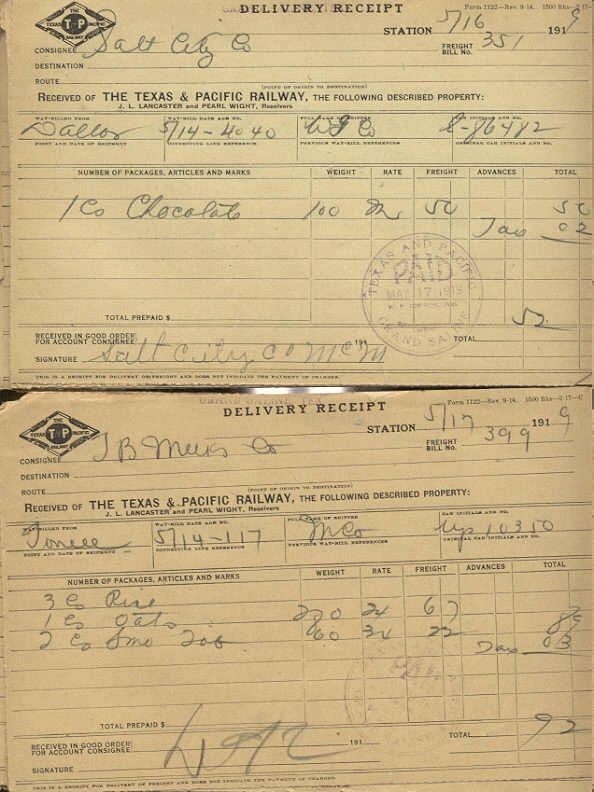 DELIVERY RECEIPT
Form 1122—Rev. 9-14. 1500 Bks—2-17-
THE TEXAS T P PACIFIC RAILWAY
STATION 5/16 1919
CONSIGNEE Salt City Co
FREIGHT BILL No. 351
DESTINATION
ROUTE
(POINT OF ORIGIN TO DESTINATION)
RECEIVED OF THE TEXAS & PACIFIC RAILWAY, THE FOLLOWING DESCRIBED PROPERTY:
J. L. LANCASTER and PEARL WIGHT, Receivers
WAY-BILLED FROM WAY-BILL DATE AND NO. FULL NAME OF SHIPPER CAR INITIALS AND NO.
Dallas 5/14-4040 8-86482
POINT AND DATE OF SHIPMENT CONNECTING LINE REFERENCE PREVIOUS WAY-BILL REFERENCES ORIGINAL CAR INITIALS AND NO.
NUMBER OF PACKAGES, ARTICLES AND MARKS WEIGHT RATE FREIGHT ADVANCES TOTAL
1 Cs Chocolate 100 50 50
Tax 02
TEXAS AND PACIFIC
PAID
MAY 17 1919
GRAND SALINE
TOTAL PREPAID $
52
RECEIVED IN GOOD ORDER FOR ACCOUNT CONSIGNEE 191 TOTAL
SIGNATURE Salt City Co McM
THIS IS A RECEIPT FOR DELIVERY OF FREIGHT AND DOES NOT INDICATE THE PAYMENT OF CHARGES.
DELIVERY RECEIPT
Form 1122—Rev. 9-14. 1500 Bks—2-17—
THE TEXAS T P PACIFIC RAILWAY
STATION 5/17 1919
CONSIGNEE T B Meeks Co
FREIGHT BILL No. 399
DESTINATION
ROUTE
(POINT OF ORIGIN TO DESTINATION)
RECEIVED OF THE TEXAS & PACIFIC RAILWAY, THE FOLLOWING DESCRIBED PROPERTY:
J. L. LANCASTER and PEARL WIGHT, Receivers
WAY-BILLED FROM WAY-BILL DATE AND NO. FULL NAME OF SHIPPER CAR INITIALS AND NO.
5/14-117 M Co 10310
POINT AND DATE OF SHIPMENT CONNECTING LINE REFERENCE PREVIOUS WAY-BILL REFERENCES ORIGINAL CAR INITIALS AND NO.
NUMBER OF PACKAGES, ARTICLES AND MARKS WEIGHT RATE FREIGHT ADVANCES TOTAL
3 Cs Rice
1 Cs Oats 24 67
2 Cs Smo Tob 60 22 89
Tax 03
TOTAL PREPAID $
92
RECEIVED IN GOOD ORDER FOR ACCOUNT CONSIGNEE 191 TOTAL
SIGNATURE
THIS IS A RECEIPT FOR DELIVERY OF FREIGHT AND DOES NOT INDICATE THE PAYMENT OF CHARGES.